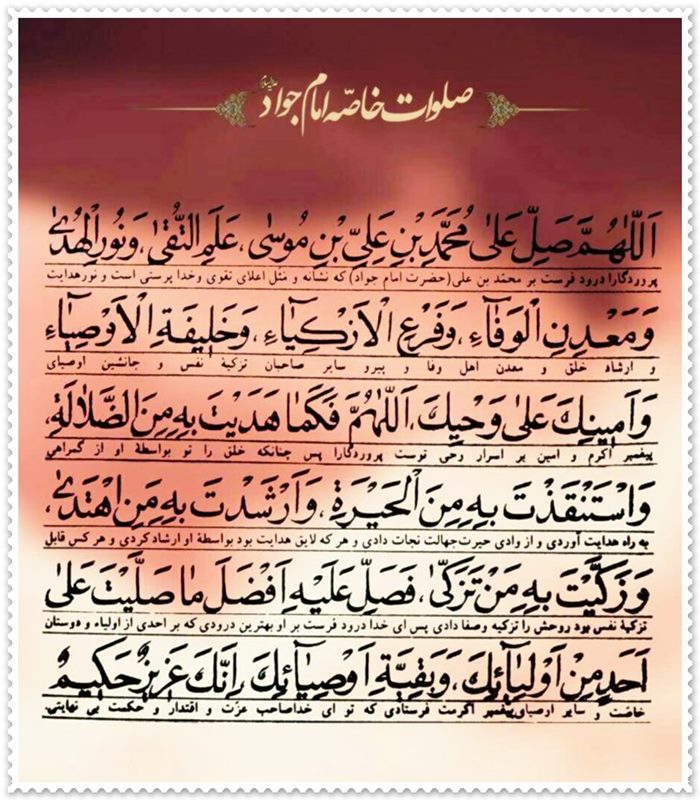 صلوات خاصّه امام جواد علیه‌السلام
اَللّٰهُمَّ صَلِّ عَلیٰ مُحَمَّدِ بْنِ عَلِیِّ بْنِ مُوسیٰ، عَلَمِ التُّقیٰ، وَنُورِ الْهُدیٰ
پروردگارا درود فرست بر محمّد بن علی (حضرت امام جواد) که نشانه و مثل اعلای تقوی وخدا پرستی است و نورهدایت
وَمَعْدِنِ الْوَفاۤءِ، وَفَرْعِ الْاَزْکِیاۤءِ، وَخَلِیفَةِ الْاَوْصِیاۤءِ
و ارشاد خلق و معدن اهل وفا و پیرو سایر صاحبان تزکیهٔ نفس و جانشین اوصیای
وَاَمِینِكَ عَلیٰ وَحْیِكَ، اَللّٰهُمَّ فَکَما هَدَیْتَ بِهِ مِنَ الضَّلالَةِ،
پیغمبر اکرم و امین بر اسرار وحی توست پروردگارا پس چنانکه خلق را تو بواسطهٔ او از گمراهی
وَاسْتَنْقَذْتَ بِهِ مِنَ الْحَیْرَةِ، وَاَرْشَدْتَ بِهِ مَنِ اهْتَدیٰ،
به راه هدایت آوردی و از وادی حیرت جهالت نجات دادی و هر که لایق هدایت بود بواسطهٔ او ارشاد کردی و هر کس قابل
وَزَکَّیْتَ بِهِ مَنْ تَزَکّیٰ، فَصَلِّ عَلَیْهِ اَفْضَلَ ما صَلَّیْتَ عَلیٰ
تزکیهٔ نفس بود روحش را تزکیه وصفا دادی پس ای خدا درود فرست بر او بهترین درودی که بر احدی از اولیاء و دوستان
اَحَدٍ مِنْ اَوْلِیاۤئِكَ، وَبَقِیَّةِ اَوْصِیاۤئِكَ، اِنَّكَ عَزِیزٌ حَکِیمٌ
خاصّت و سایر اوصیای پیغمبر اکرمت فرستادی که تو ای خداصاحب عزّت و اقتدار و حکمت بی نهایتی.